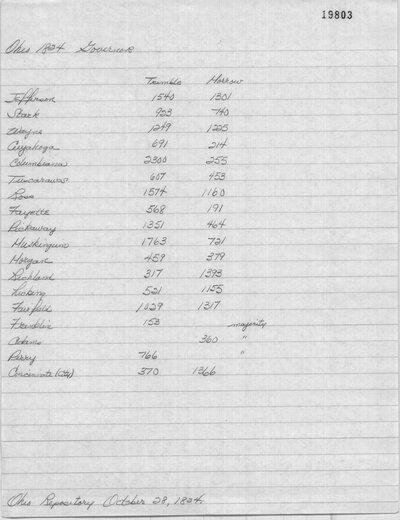 19803
Ohio 1824 Governor
Trimble Morrow
Jefferson 1540 1301
Stark 923 740
Wayne 1249 1225
Cuyahoga 691 214
Columbiana 2300 255
Tuscarawas 607 453
Ross 1574 1160
Fayette 568 191
Pickaway 1351 464
Muskingum 1763 721
Morgan 459 379
Richland 317 1393
Licking 521 1155
Fairfield 1029 1317
Franklin 153 majority
Adams 360 "
Perry 766 "
Cincinnati (City) 370 1366
Ohio Repository October 28, 1824